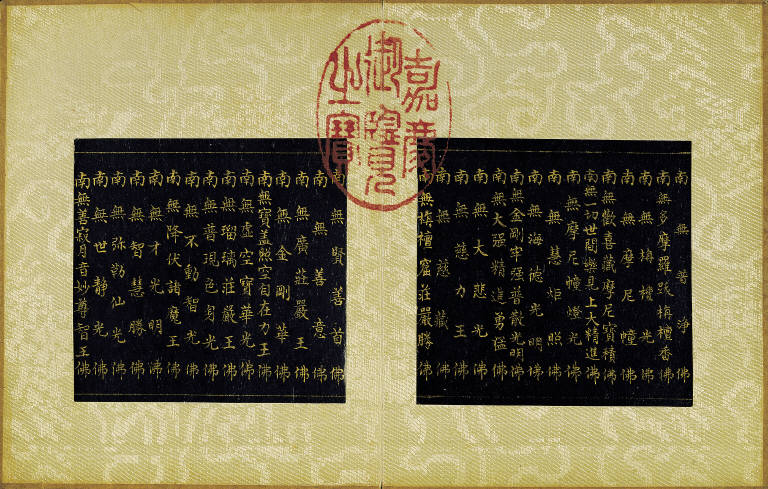 嘉慶御覽之寶
南無普淨佛
南無多摩羅跋栴檀香佛
南無栴檀光佛
南無摩尼幢佛
南無歡喜藏摩尼寶積佛
南無一切世間樂見上大精進佛
南無摩尼幢燈光佛
南無慧炬照佛
南無海德光明佛
南無金剛牢强普散光明佛
南無大强精進勇猛佛
南無大悲光佛
南無慈力王佛
南無慈藏佛
南無栴檀窟莊嚴勝佛
南無賢善首佛
南無善意佛
南無廣莊嚴王佛
南無金剛華佛
南無寶盖照空自在力王佛
南無虛空寶華光佛
南無瑠璃莊嚴王佛
南無普現色身光佛
南無不動智光佛
南無降伏諸魔王佛
南無才光明佛
南無智慧勝佛
南無弥勒仙光佛
南無世静光佛
南無善寂月音妙尊智王佛